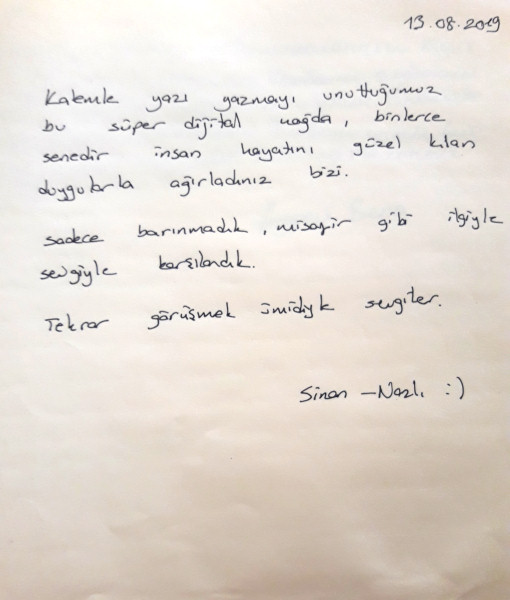 13.08.2019
Kalemle yazı yazmayı unuttuğumuz
bu süper dijital çağda, binlerce
senedir insan hayatını güzel kılan
duygularla ağırladınız bizi.
sadece barınmadık, misafir gibi ilgiyle
sevgiyle karşılandık.
Tekrar görüşmek ümidiyle sevgiler.
Sinan - Nazlı :)